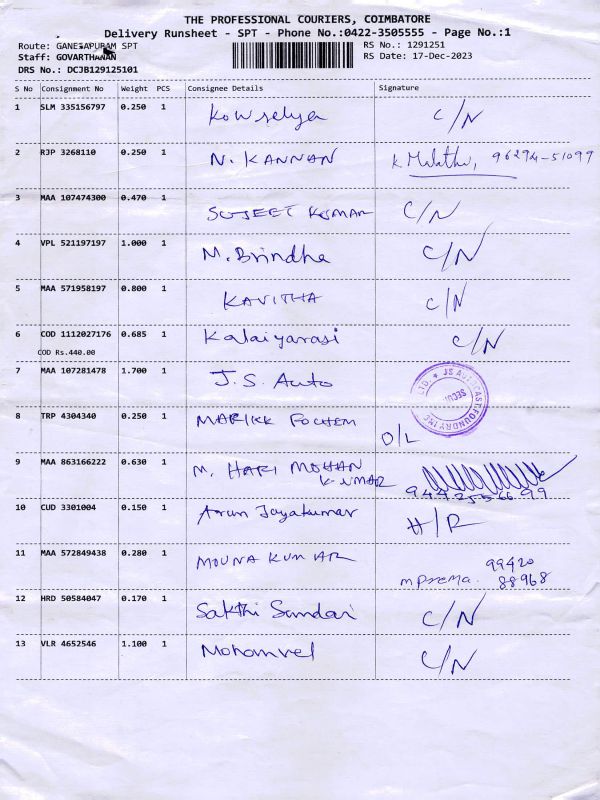 THE PROFESSIONAL COURIERS, COIMBATORE
Delivery Runsheet - SPT - Phone No.:0422-3505555 - Page No.:1
Route: GANESAPURAM SPT
RS No.: 1291251
Staff: GOVARTHANAN
RS Date: 17-Dec-2023
DRS No.: DCJB129125101
S No Consignment No Weight PCS Consignee Details Signature
1 SLM 335156797 0.250 1 Kowselya C/N
2 RJP 3268110 0.250 1 N. KANNAN K Malathi, 96294-51099
3 MAA 107474300 0.470 1 SUJEET KUMAR C/N
4 VPL 521197197 1.000 1 M. Brindha C/N
5 MAA 571958197 0.800 1 KAVITHA C/N
6 COD 1112027176 0.685 1 Kalaiyarasi C/N
COD Rs.440.00
7 MAA 107281478 1.700 1 J.S. Auto
JS AUTOCAST FOUNDRY IND LTD. *
8 TRP 4304340 0.250 1 MARIKK FOCHEM O/L
9 MAA 863166222 0.630 1 M. HARI MOHAN
KUMAR 9442556699
10 CUD 3301004 0.150 1 Arun Jayakumar H/R
11 MAA 572849438 0.280 1 MOUNA KUMAR
mprema. 99420
88968
12 HRD 50584047 0.170 1 Sakthi Sundari C/N
13 VLR 4652546 1.100 1 Mohanvel C/N